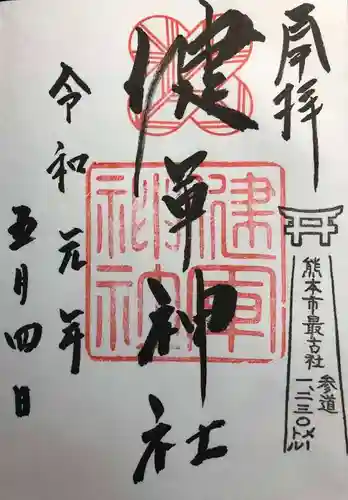 奉拝
健軍神社
令和元年
五月四日
健軍神社
熊本市最古社
参道
一、二三〇メートル